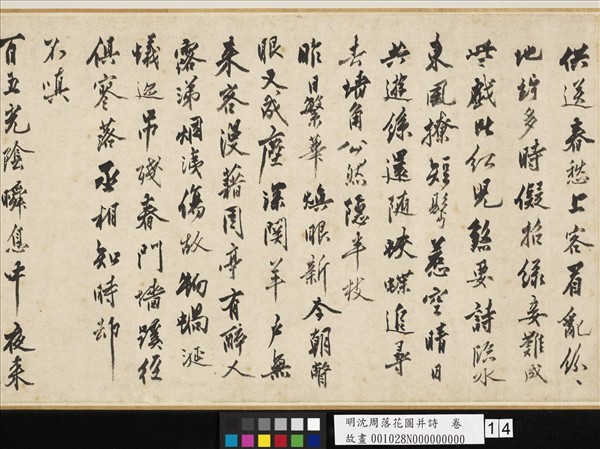 供送春愁上客眉亂紛〻
地竚多時儗招綠妾難成
些戲比紅兒煞要詩臨水
東風撩短鬢惹空晴日
共遊絲還隨蛺蝶追尋
去墻角公然隱半枝
昨日繁華煥眼新今朝瞥
眼又成塵深關羊戶無
來客漫藉周亭有醉人
露涕烟洟傷故物蝸涎
蟻迹吊殘春門墻蹊徑
俱寥落丞相知時却
不嗔
百五光陰瞬息中夜來
明沈周落花圖并詩 卷
故畫 001028N000000000
14